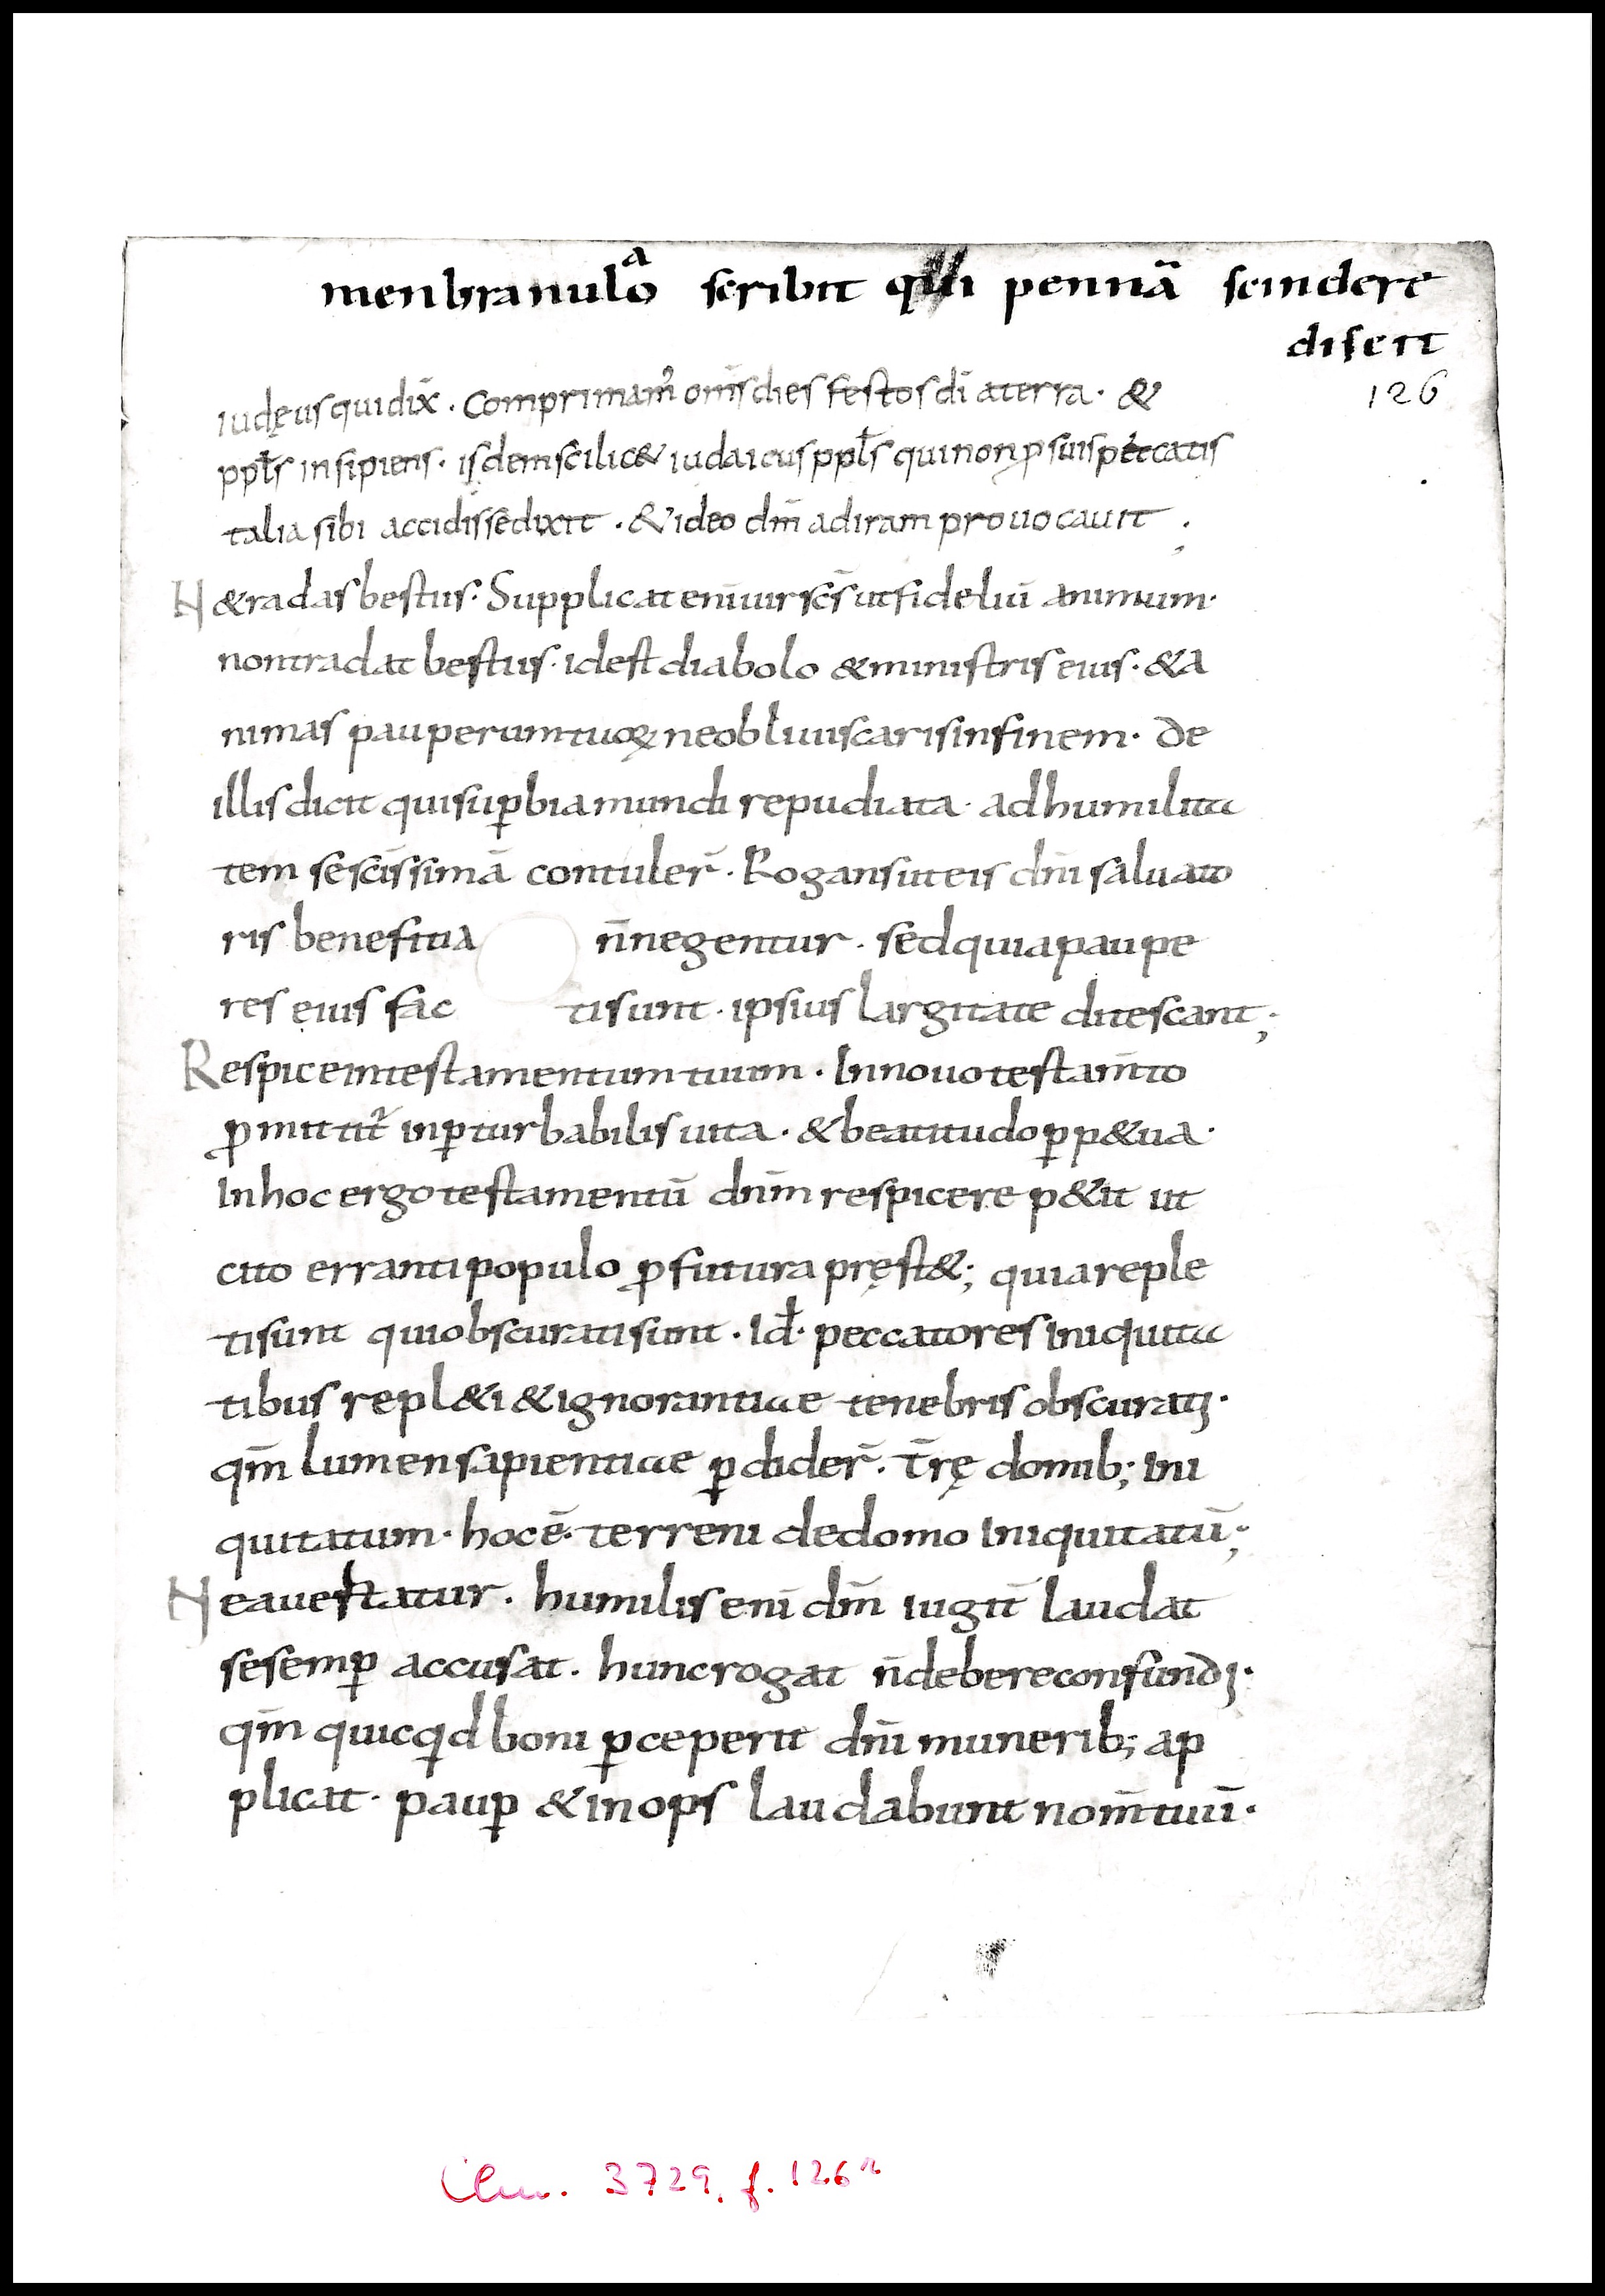 menbranuloᷓ scribit qui pennā scindere
discit
126
iudęus qui dix̄. Comprimam᷒ om̄s dies festos dī a terra. &
ppl̄s insipiens. isdem scilic& iudaicus ppl̄s qui non ꝓ suis peccatis
talia sibi accidisse dixit. & ideo dm̄ ad iram prouocauit;
N& radas bestiis. Supplicat enī uir scs̄ ut fideliū animum.
non tradat bestiis. id est diabolo & ministris eius. & a
nimas pauperum tuoꝝ ne obliuiscaris in finem. De
illis dicit qui suꝑbia mundi repudiata. ad humilita
tem se scīssimā contuler̄. Rogans ut eis dn̄i saluato
ris benefitia n̄ negentur. sed quia paupe
res eius fac ti sunt. ipsius largitate ditescant;
Respice in testamentum tuum. In nouo testam̄to
ꝓmittit᷒ inꝑturbabilis uita. & beatitudo ꝑp&ua.
In hoc ergo testamentū dn̄m respicere p&it ut
cito erranti populo ꝓfutura pręst&; quia reple
ti sunt qui obscurati sunt. Id. peccatores iniquita
tibus repl&i & ignorantiae tenebris obscurati.
qm̄ lumen sapientiae ꝑdider̄. t̄rę domib; ini
quitatum. hoc ē. terreni de domo iniquitatū;
Ne auertatur. humilis enī dm̄ iugit̄ laudat
se semꝑ accusat. hunc rogat n̄ debere confundi.
qm̄ quicqid boni ꝑceperit dn̄i munerib; ap
plicat. pauꝑ & inops laudabunt nom̄ tuū.
Clm. 3729, f. 126r